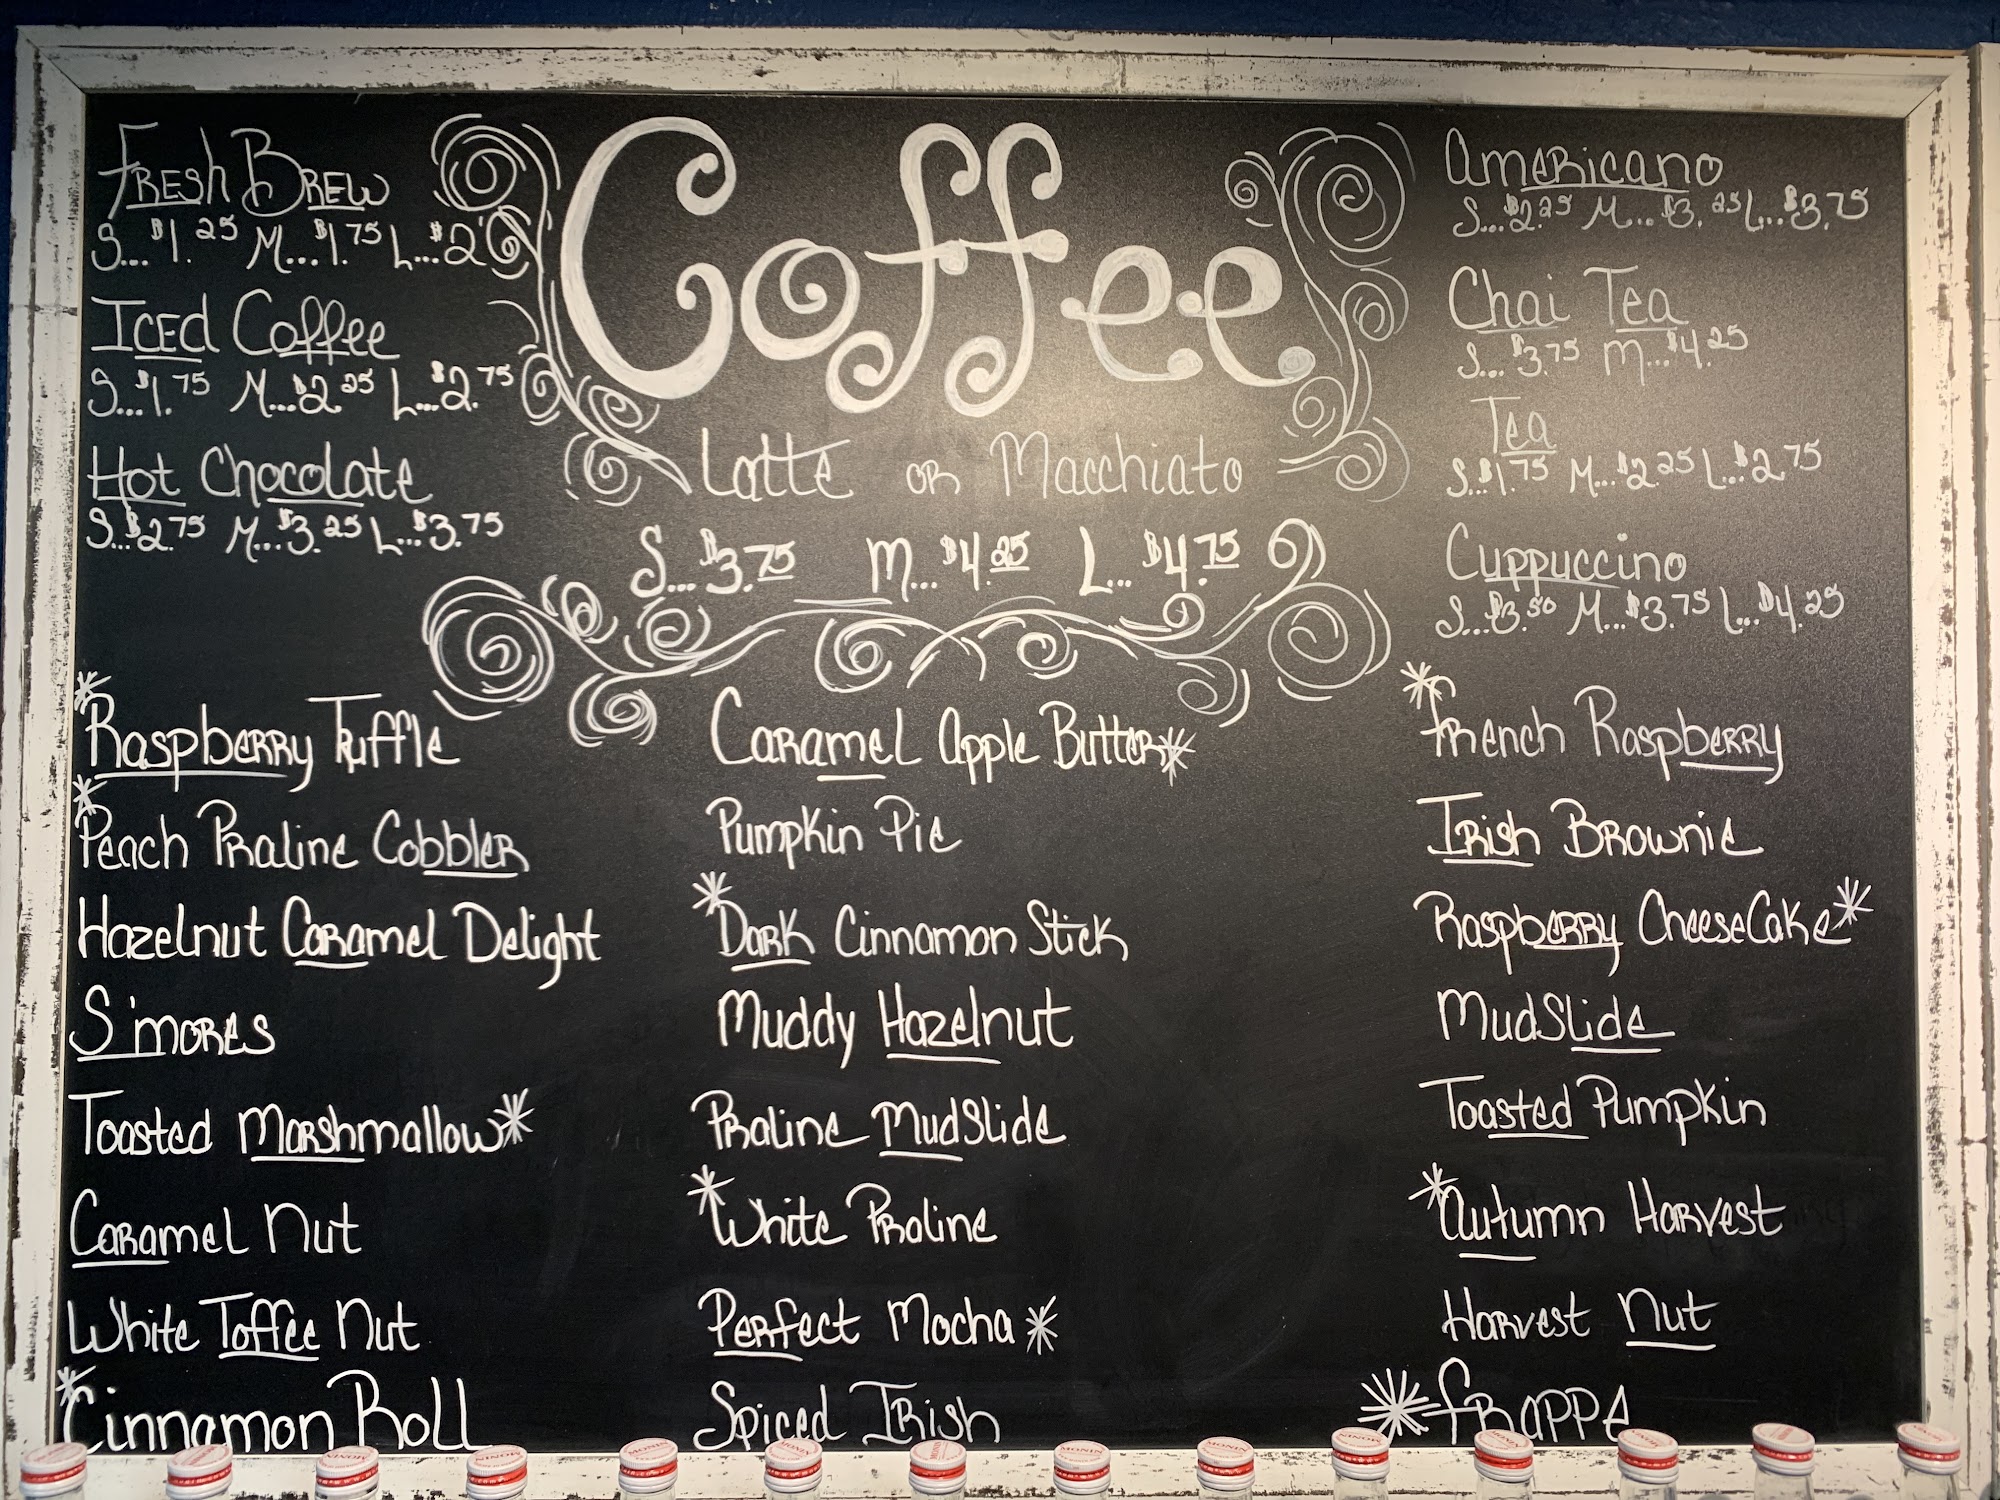 Fresh Brew
S...$1.25 M...$1.75 L...$2.
Iced Coffee
S...$1.75 M...$2.25 L...$2.75
Hot Chocolate
S...$2.75 M...$3.25 L...$3.75
Coffee
Latte or Macchiato
S...$3.75 M...$4.25 L...$4.75
Americano
S...$2.25 M...$3.25 L...$3.75
Chai Tea
S...$3.75 M...$4.25
Tea
S...$1.75 M...$2.25 L...$2.75
Cuppuccino
S...$3.50 M...$3.75 L...$4.25
*Raspberry Truffle
*Peach Praline Cobbler
Hazelnut Caramel Delight
S'mores
Toasted Marshmallow*
Caramel Nut
White Toffee Nut
*Cinnamon Roll
Caramel Apple Butter*
Pumpkin Pie
*Dark Cinnamon Stick
Muddy Hazelnut
Praline MudSlide
*White Praline
Perfect Mocha*
Spiced Irish
*French Raspberry
Irish Brownie
Raspberry CheeseCake*
MudSlide
Toasted Pumpkin
*Autumn Harvest
Harvest Nut
*Frappe
MONIN
MONIN
MONIN
MONIN
MONIN
MONIN
MONIN
MONIN
MONIN
MONIN
MONIN
MONIN